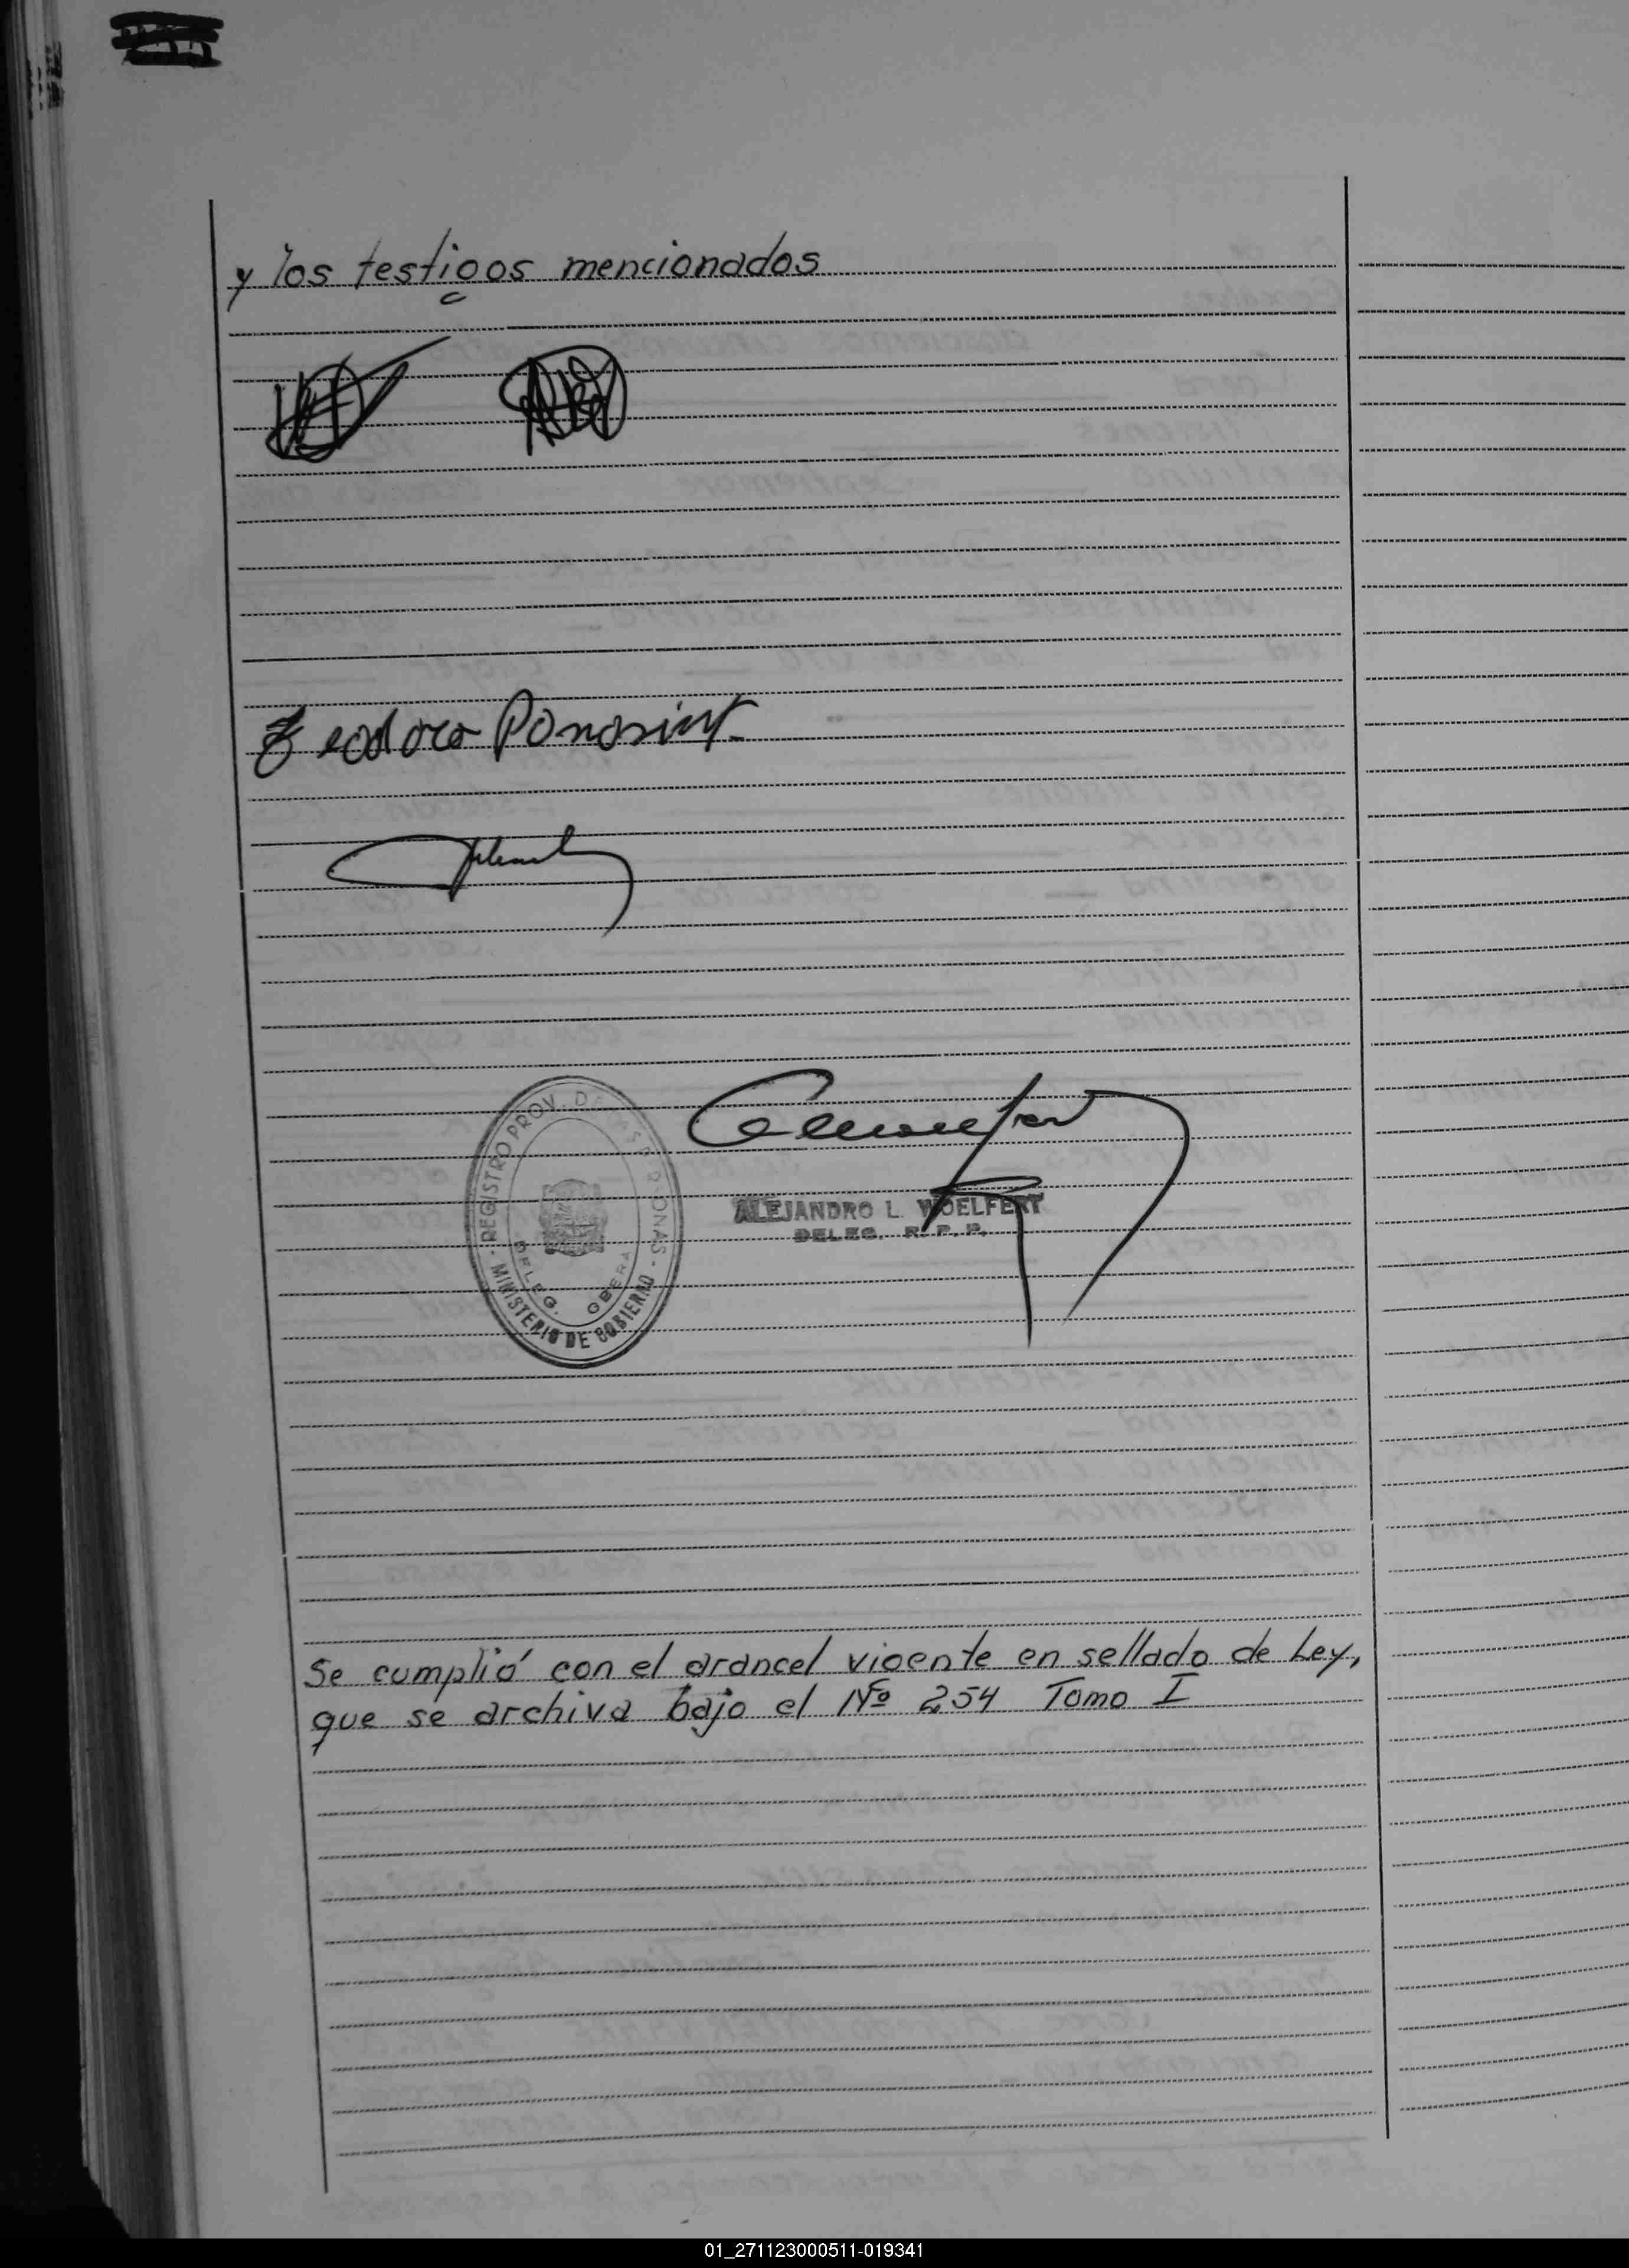 y los testigos mencionados
Teodoro
REGISTRO PROV. DE LAS PERSONAS
MINISTERIO DE GOBIERNO
DELEG. OBERA
ALEJANDRO L. WOELFERT
DELEG. R. P. P.
Se cumplió con el arancel vigente en sellado de Ley,
que se archiva bajo el Nº 254 Tomo I
01_271123000511-019341